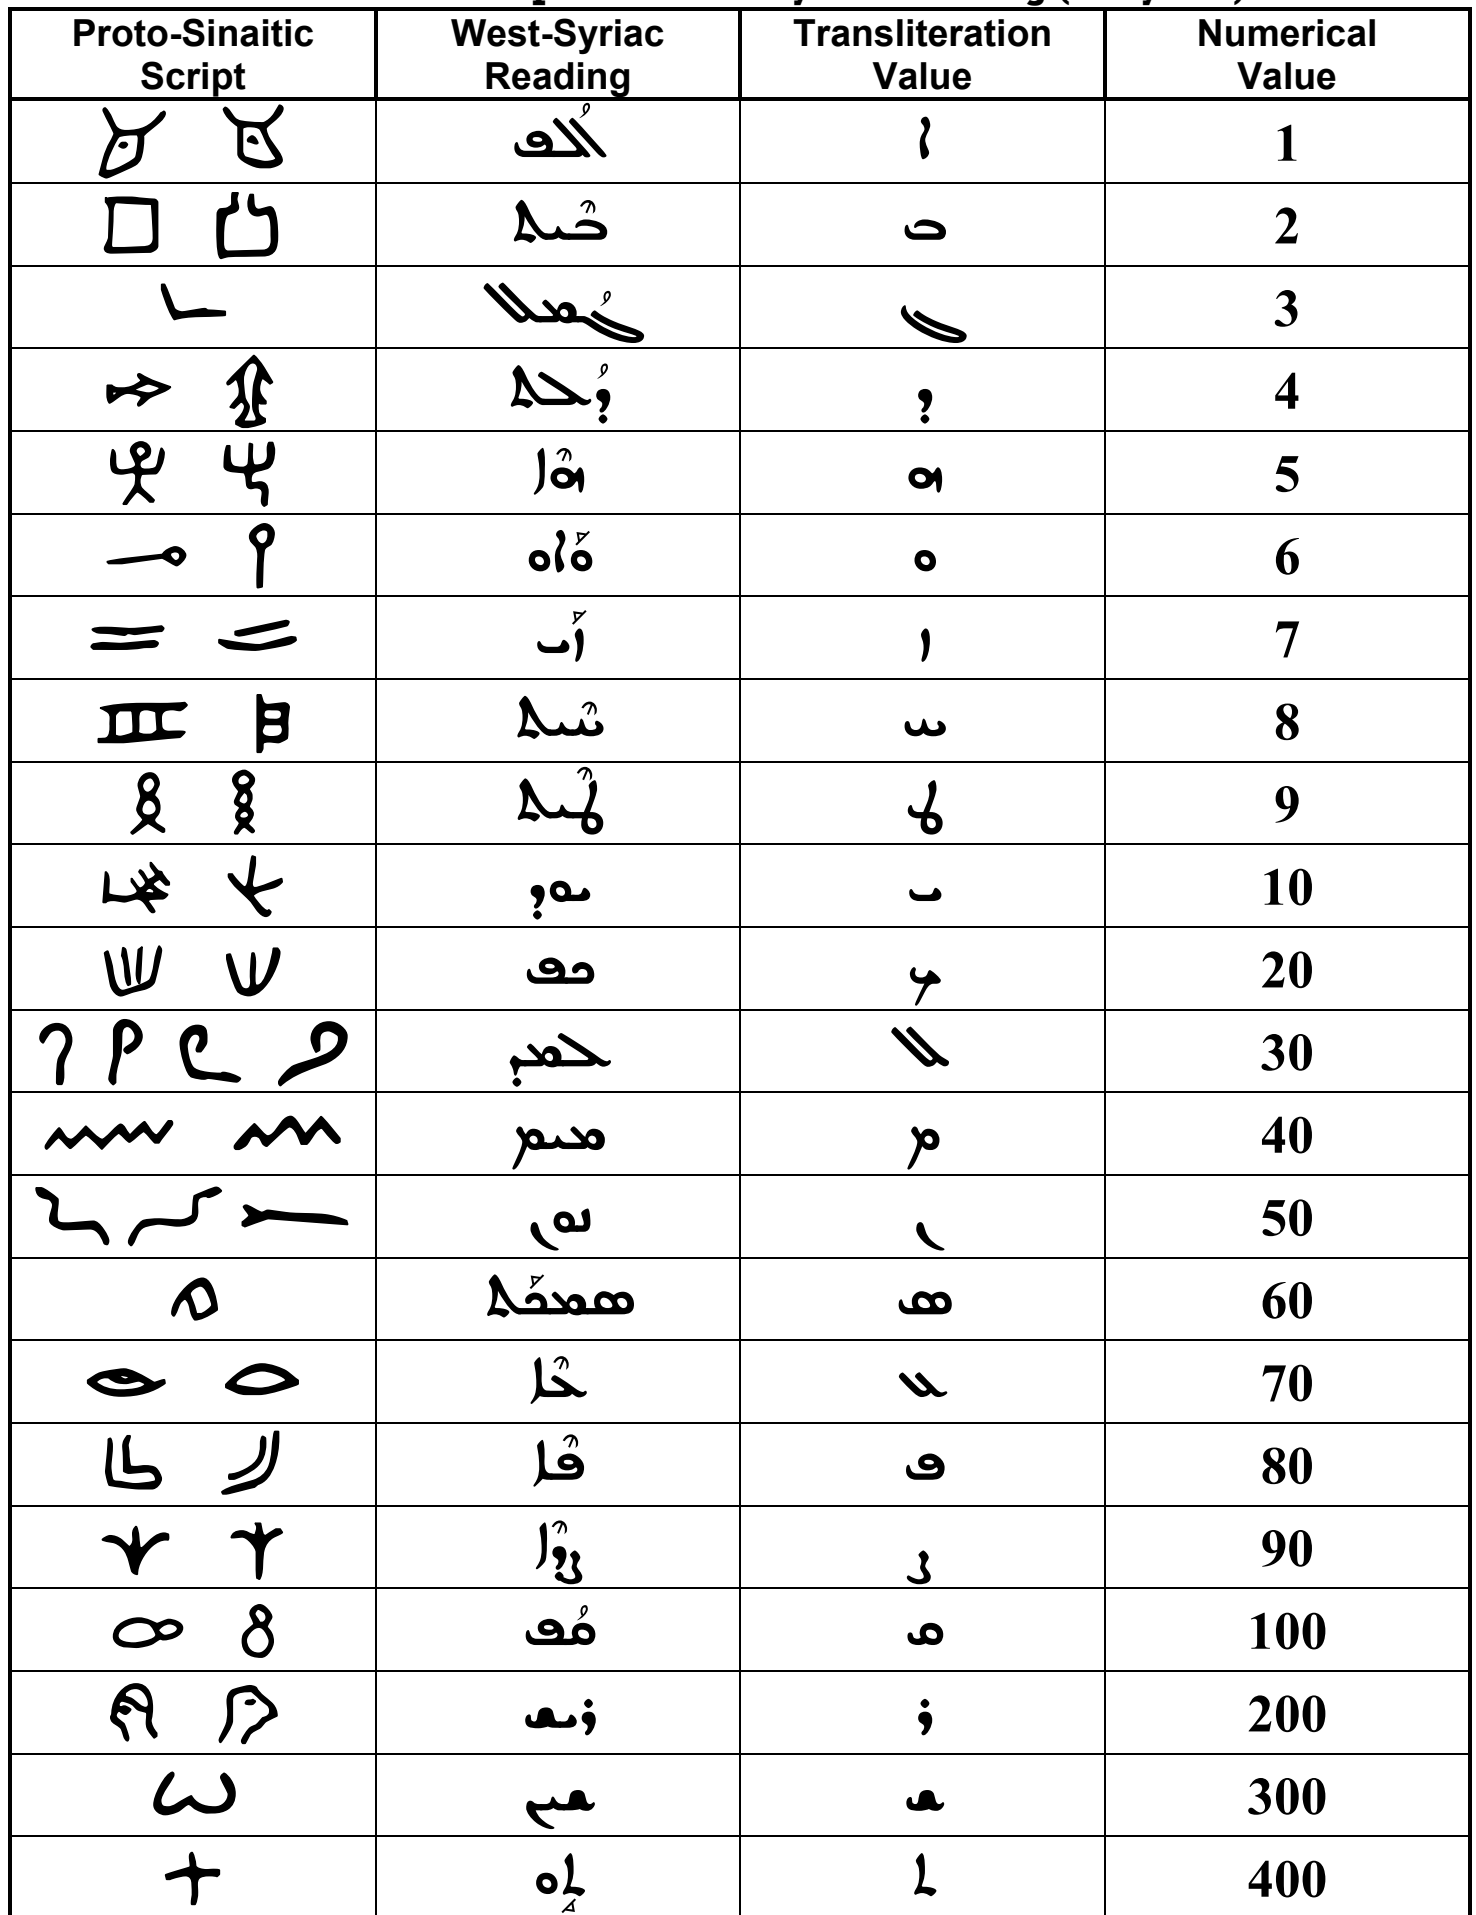 Proto-Sinaitic Script West-Syriac Reading Transliteration Value Numerical Value
ܐܳܠܦ ܐ 1
ܒܶܝܬ ܒ 2
ܓܳܡܠ ܓ 3
ܕܳܠܬ ܕ 4
ܗܶܐ ܗ 5
ܘܰܐܘ ܘ 6
ܙܰܝ ܙ 7
ܚܶܝܬ ܚ 8
ܛܶܝܬ ܛ 9
ܝܘܕ ܝ 10
ܟܦ ܟ 20
ܠܡܕ ܠ 30
ܡܝܡ ܡ 40
ܢܘܢ ܢ 50
ܣܡܟܰܬ ܣ 60
ܥܶܐ ܥ 70
ܦܶܐ ܦ 80
ܨܕܶܐ ܨ 90
ܩܳܦ ܩ 100
ܪܝܫ ܪ 200
ܫܝܢ ܫ 300
ܬܱܘ ܬ 400